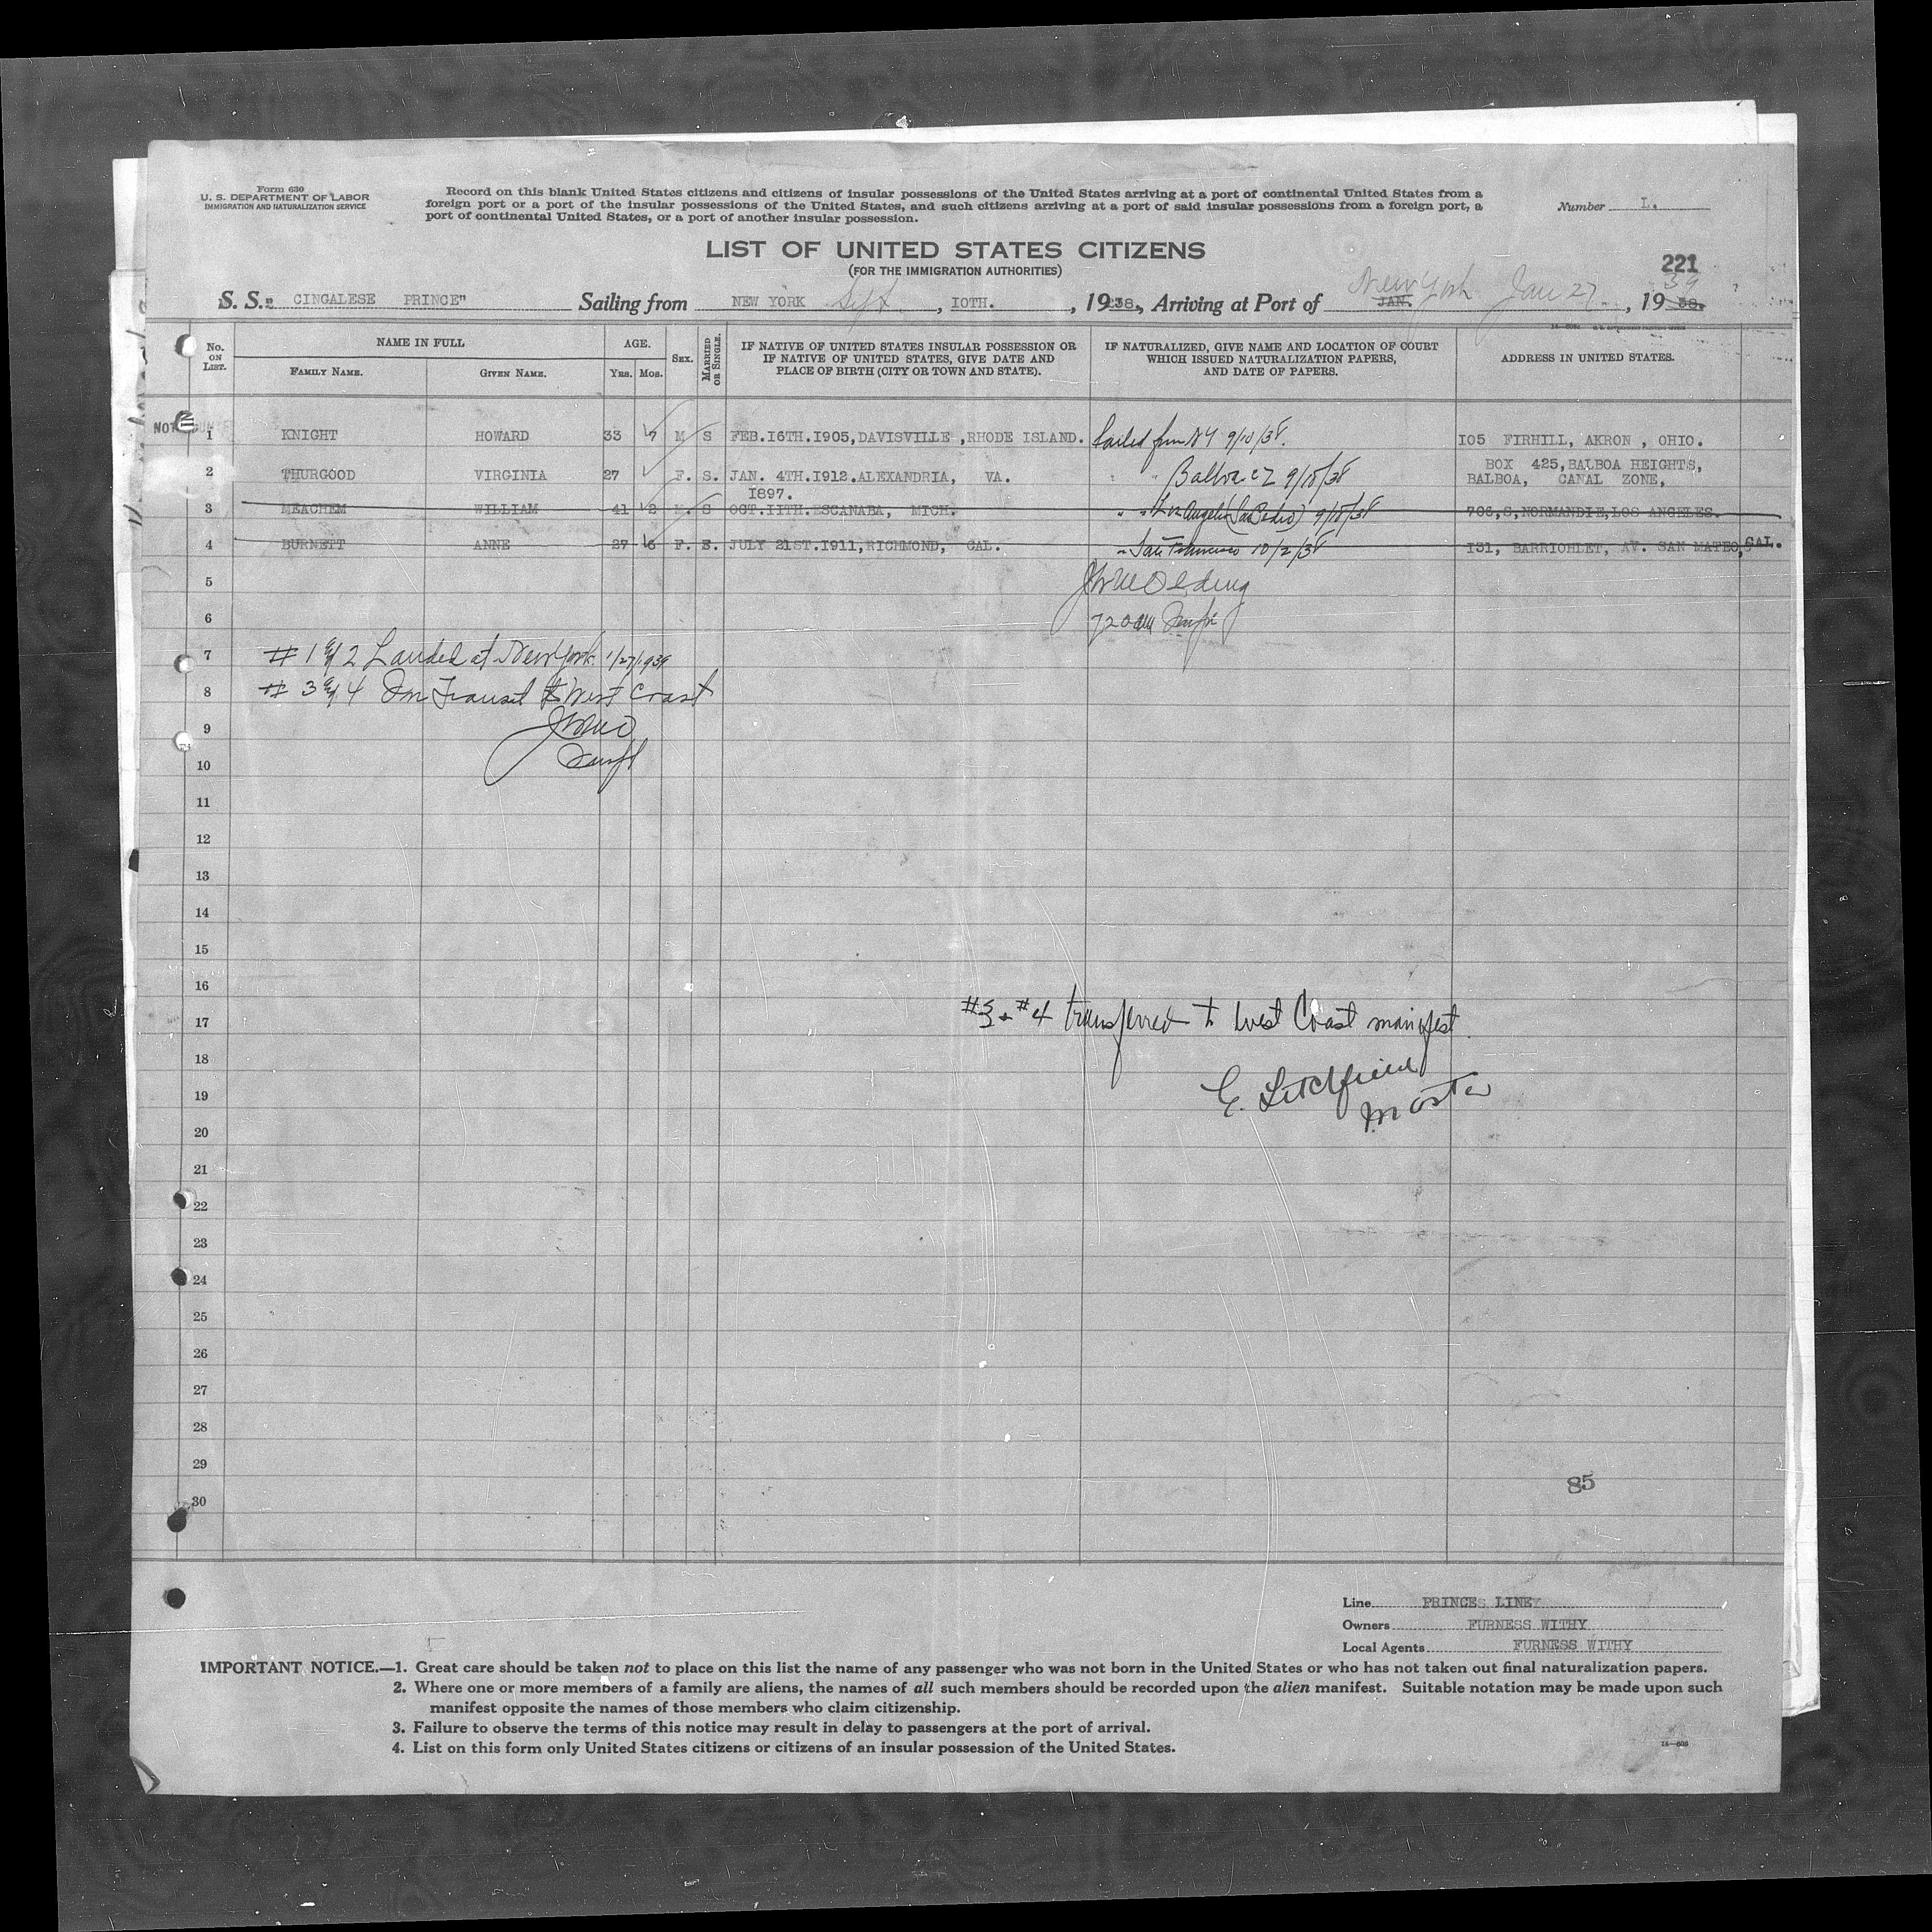 Form 630
U. S. DEPARTMENT OF LABOR
IMMIGRATION AND NATURALIZATION SERVICE
Record on this blank United States citizens and citizens of insular possessions of the United States arriving at a port of continental United States from a
foreign port or a port of the insular possessions of the United States, and such citizens arriving at a port of said insular possessions from a foreign port, a
port of continental United States, or a port of another insular possession.
Number L.
LIST OF UNITED STATES CITIZENS
(FOR THE IMMIGRATION AUTHORITIES)
221
S. S. " CINGALESE PRINCE" Sailing from NEW YORK Sept , IOTH. , 1938., Arriving at Port of New York JAN. Jan 27 , 19 38. 39
No. ON LIST. NAME IN FULL FAMILY NAME. GIVEN NAME. AGE. YRS. MOS. SEX. MARRIED OR SINGLE. IF NATIVE OF UNITED STATES INSULAR POSSESSION OR IF NATIVE OF UNITED STATES, GIVE DATE AND PLACE OF BIRTH (CITY OR TOWN AND STATE). IF NATURALIZED, GIVE NAME AND LOCATION OF COURT WHICH ISSUED NATURALIZATION PAPERS, AND DATE OF PAPERS. ADDRESS IN UNITED STATES.
1 KNIGHT HOWARD 33 7 M S FEB.I6TH.I905,DAVISVILLE ,RHODE ISLAND. Sailed from NY 9/10/38. I05 FIRHILL, AKRON , OHIO.
2 THURGOOD VIRGINIA 27 F. S. JAN. 4TH.I9I2.ALEXANDRIA, VA. " " Balboa CZ 9/18/38 BOX 425,BALBOA HEIGHTS, BALBOA, CANAL ZONE,
I897.
3 MEACHEM WILLIAM 41 2 M. S OCT.IITH.ESCANABA, MICH. " " Los Angeles (San Pedro) 9/18/38 706,S,NORMANDIE,LOS ANGELES.
4 BURNETT ANNE 27 6 F. S. JULY 2IST.I9II,RICHMOND, CAL. " San Francisco 10/2/38 I3I, BARRIOHLET, AV. SAN MATEO, CAL.
5
6
720am
7 # 1 & 2 Landed at New York 1/27/1939
8 # 3 & 4 In Transit to West Coast
9
10
11
12
13
14
15
16
17 #3 + #4 transferred to West Coast manifest
18
19 E. Litchfield
Master
20
21
22
23
24
25
26
27
28
29
85
30
Line PRINCE LINE
Owners FURNESS WITHY
Local Agents FURNESS WITHY
IMPORTANT NOTICE.—1. Great care should be taken not to place on this list the name of any passenger who was not born in the United States or who has not taken out final naturalization papers.
2. Where one or more members of a family are aliens, the names of all such members should be recorded upon the alien manifest. Suitable notation may be made upon such
manifest opposite the names of those members who claim citizenship.
3. Failure to observe the terms of this notice may result in delay to passengers at the port of arrival.
4. List on this form only United States citizens or citizens of an insular possession of the United States.